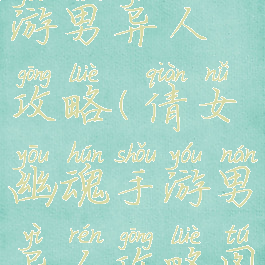 游男异人
gōng lüè qiàn nǚ
攻略(倩女
yōu hún shǒu yóu nán
幽魂手游男
yì rén gōng lüè tú
异人攻略图